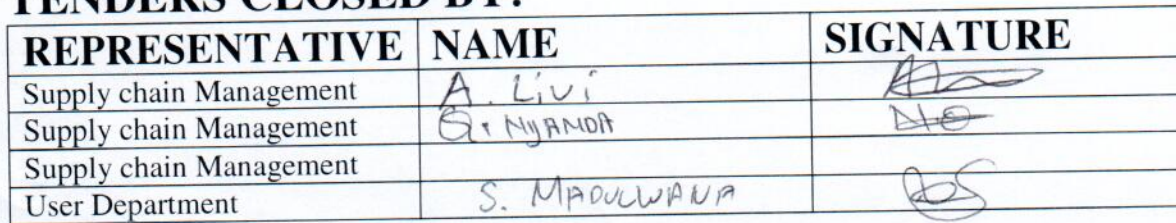 TENDERS CLOSED BY:
REPRESENTATIVE NAME SIGNATURE
Supply chain Management A. Livi
Supply chain Management G. NYAMDA
Supply chain Management
User Department S. MADULWANA